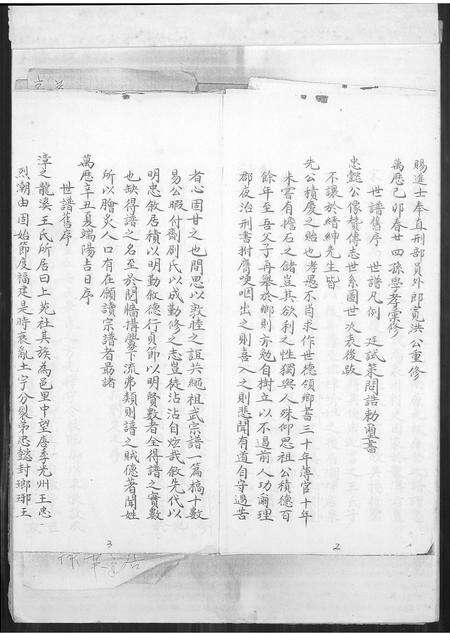 賜進士奉直刑部員外郎寬洪公重修
萬歷己卯春廿四孫學孝彙修
世譜舊序 世譜凡例 廷試策問誥勅璽書
忠懿公像贊傳志世系圖世次表後跋
不讓於縉紳先生皆
先公積慶之貽也考愚不肖求作世德領鄉書三十年薄宦十年
未嘗有檐石之儲豈其欲利之性獨與人殊仰思祖公積德百
餘年至吾父子再舉於鄉則亦勉自樹立以不過前人功爾理
郡夜治刑書拊膺哽咽出之則喜入之則悲聞有道自守過苦
2
者心固甘之也間思以敦睦之誼共纯祖武宗譜一篇槁十數
易公暇付劂剞氏以成勤修之志豈徒沾沾自炫哉敘先代以
明忠敘居積以明勤敘德行貞節以明賢數者全得譜之實數
也缺得譜之名至於閥牆搆釁下流弗類則譜之賊德著聞姓
所以膾炙人口有在願讀宗譜者最諸
萬歷辛丑夏端陽吉日序
世譜舊序
漳之龍溪王氏所居曰上苑社其族為邑里中望唐季光州王忠
烈潮由固始節度福建是時衰亂土宇分裂弟忠懿封瑯琊王
3